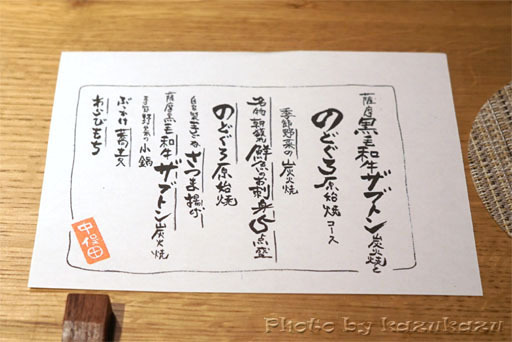 薩摩黒毛和牛ザブトン炭火焼と
のどぐろ原始焼コース
季節野菜の炭火焼
名物朝獲れ鮮魚のお刺身5点盛
のどぐろ原始焼
自家製さつま揚げ
薩摩黒毛和牛ザブトン炭火焼
季節野菜の小鍋
ぶっかけ蕎麦
わらびもち
中俣田
Photo by kazukazu